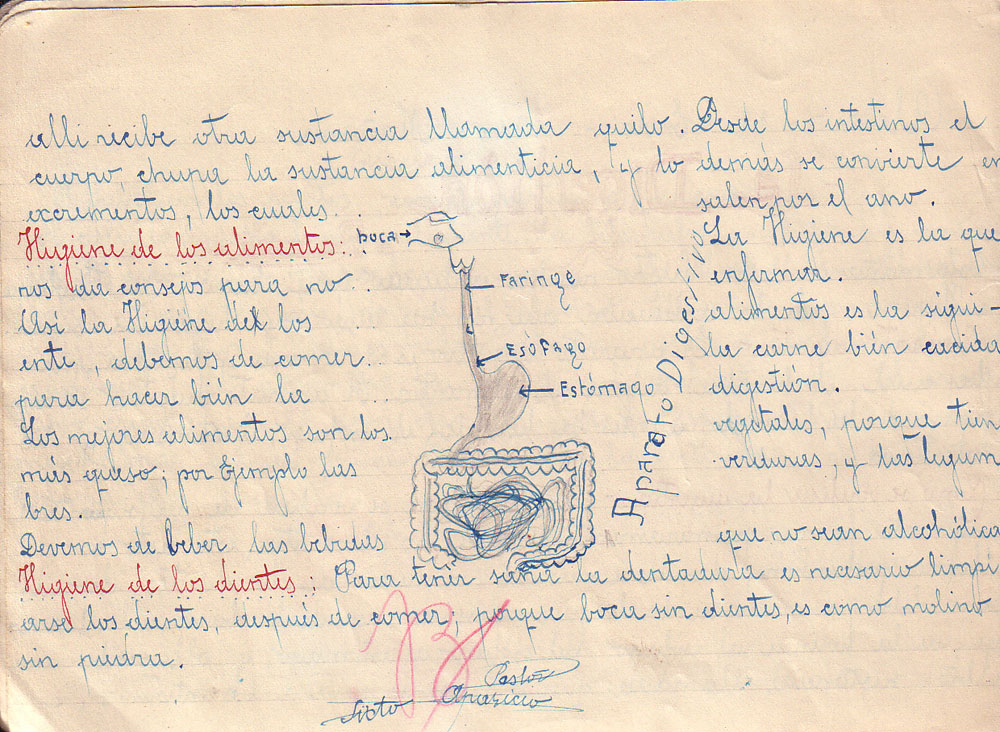 alli recibe otra sustancia llamada quilo. Desde los intestinos el
cuerpo, chupa la sustancia alimenticia, y lo demás se convierte en
excrementos, los cuales salen por el ano.
Higiene de los alimentos: La Higiene es la que
nos da consejos para no enfermar.
Así la Higiene del los alimentos es la sigui-
ente, debemos de comer la carne bién cocida
para hacer bién la digestión.
Los mejores alimentos son los vegetales, porque tien
más queso; por Ejemplo las verduras, y las legum
bres.
Devemos de beber las bebidas que no sean alcohólica
Higiene de los dientes: Para tener sana la dentadura es necesario limpi
arse los dientes, después de comer; porque boca sin dientes, es como molino
sin piedra.
boca
Faringe
Esófago
Estómago
Aparato Digestivo
Sixto Aparicio Pastor